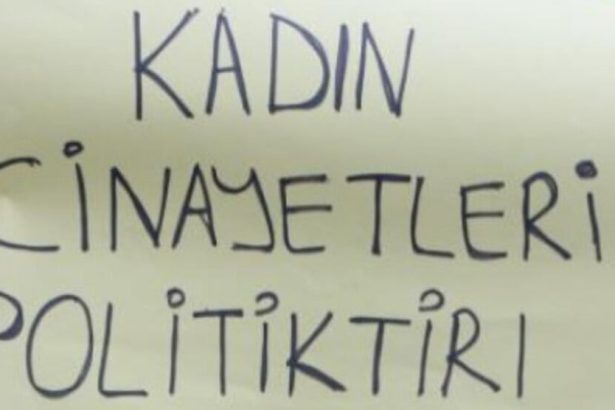 KADIN
CİNAYETLERİ
POLİTİKTİR!